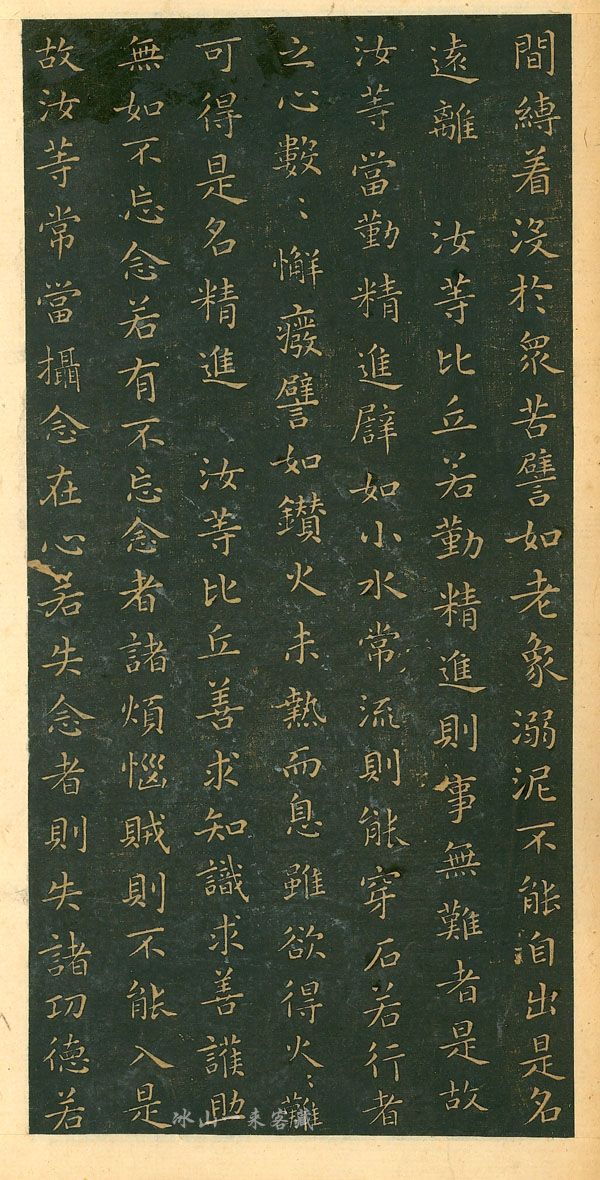 間縛着没於衆苦譬如老象溺泥不能自出是名
遠離　汝等比丘若勤精進則事無難者是故
汝等當勤精進辟如小水常流則能穿石若行者
之心數〻懈癈譬如鑚火未熱而息雖欲得火〻難
可得是名精進　汝等比丘善求知識求善護助
無如不忘念若有不忘念者諸煩惱賊則不能入是
故汝等常當攝念在心若失念者則失諸功德若
冰山一来客藏